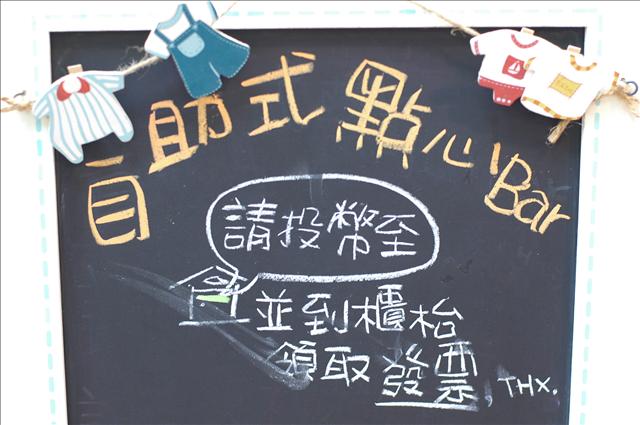 自助式 點心Bar
請投幣至
並到櫃枱
領取發票, THX.